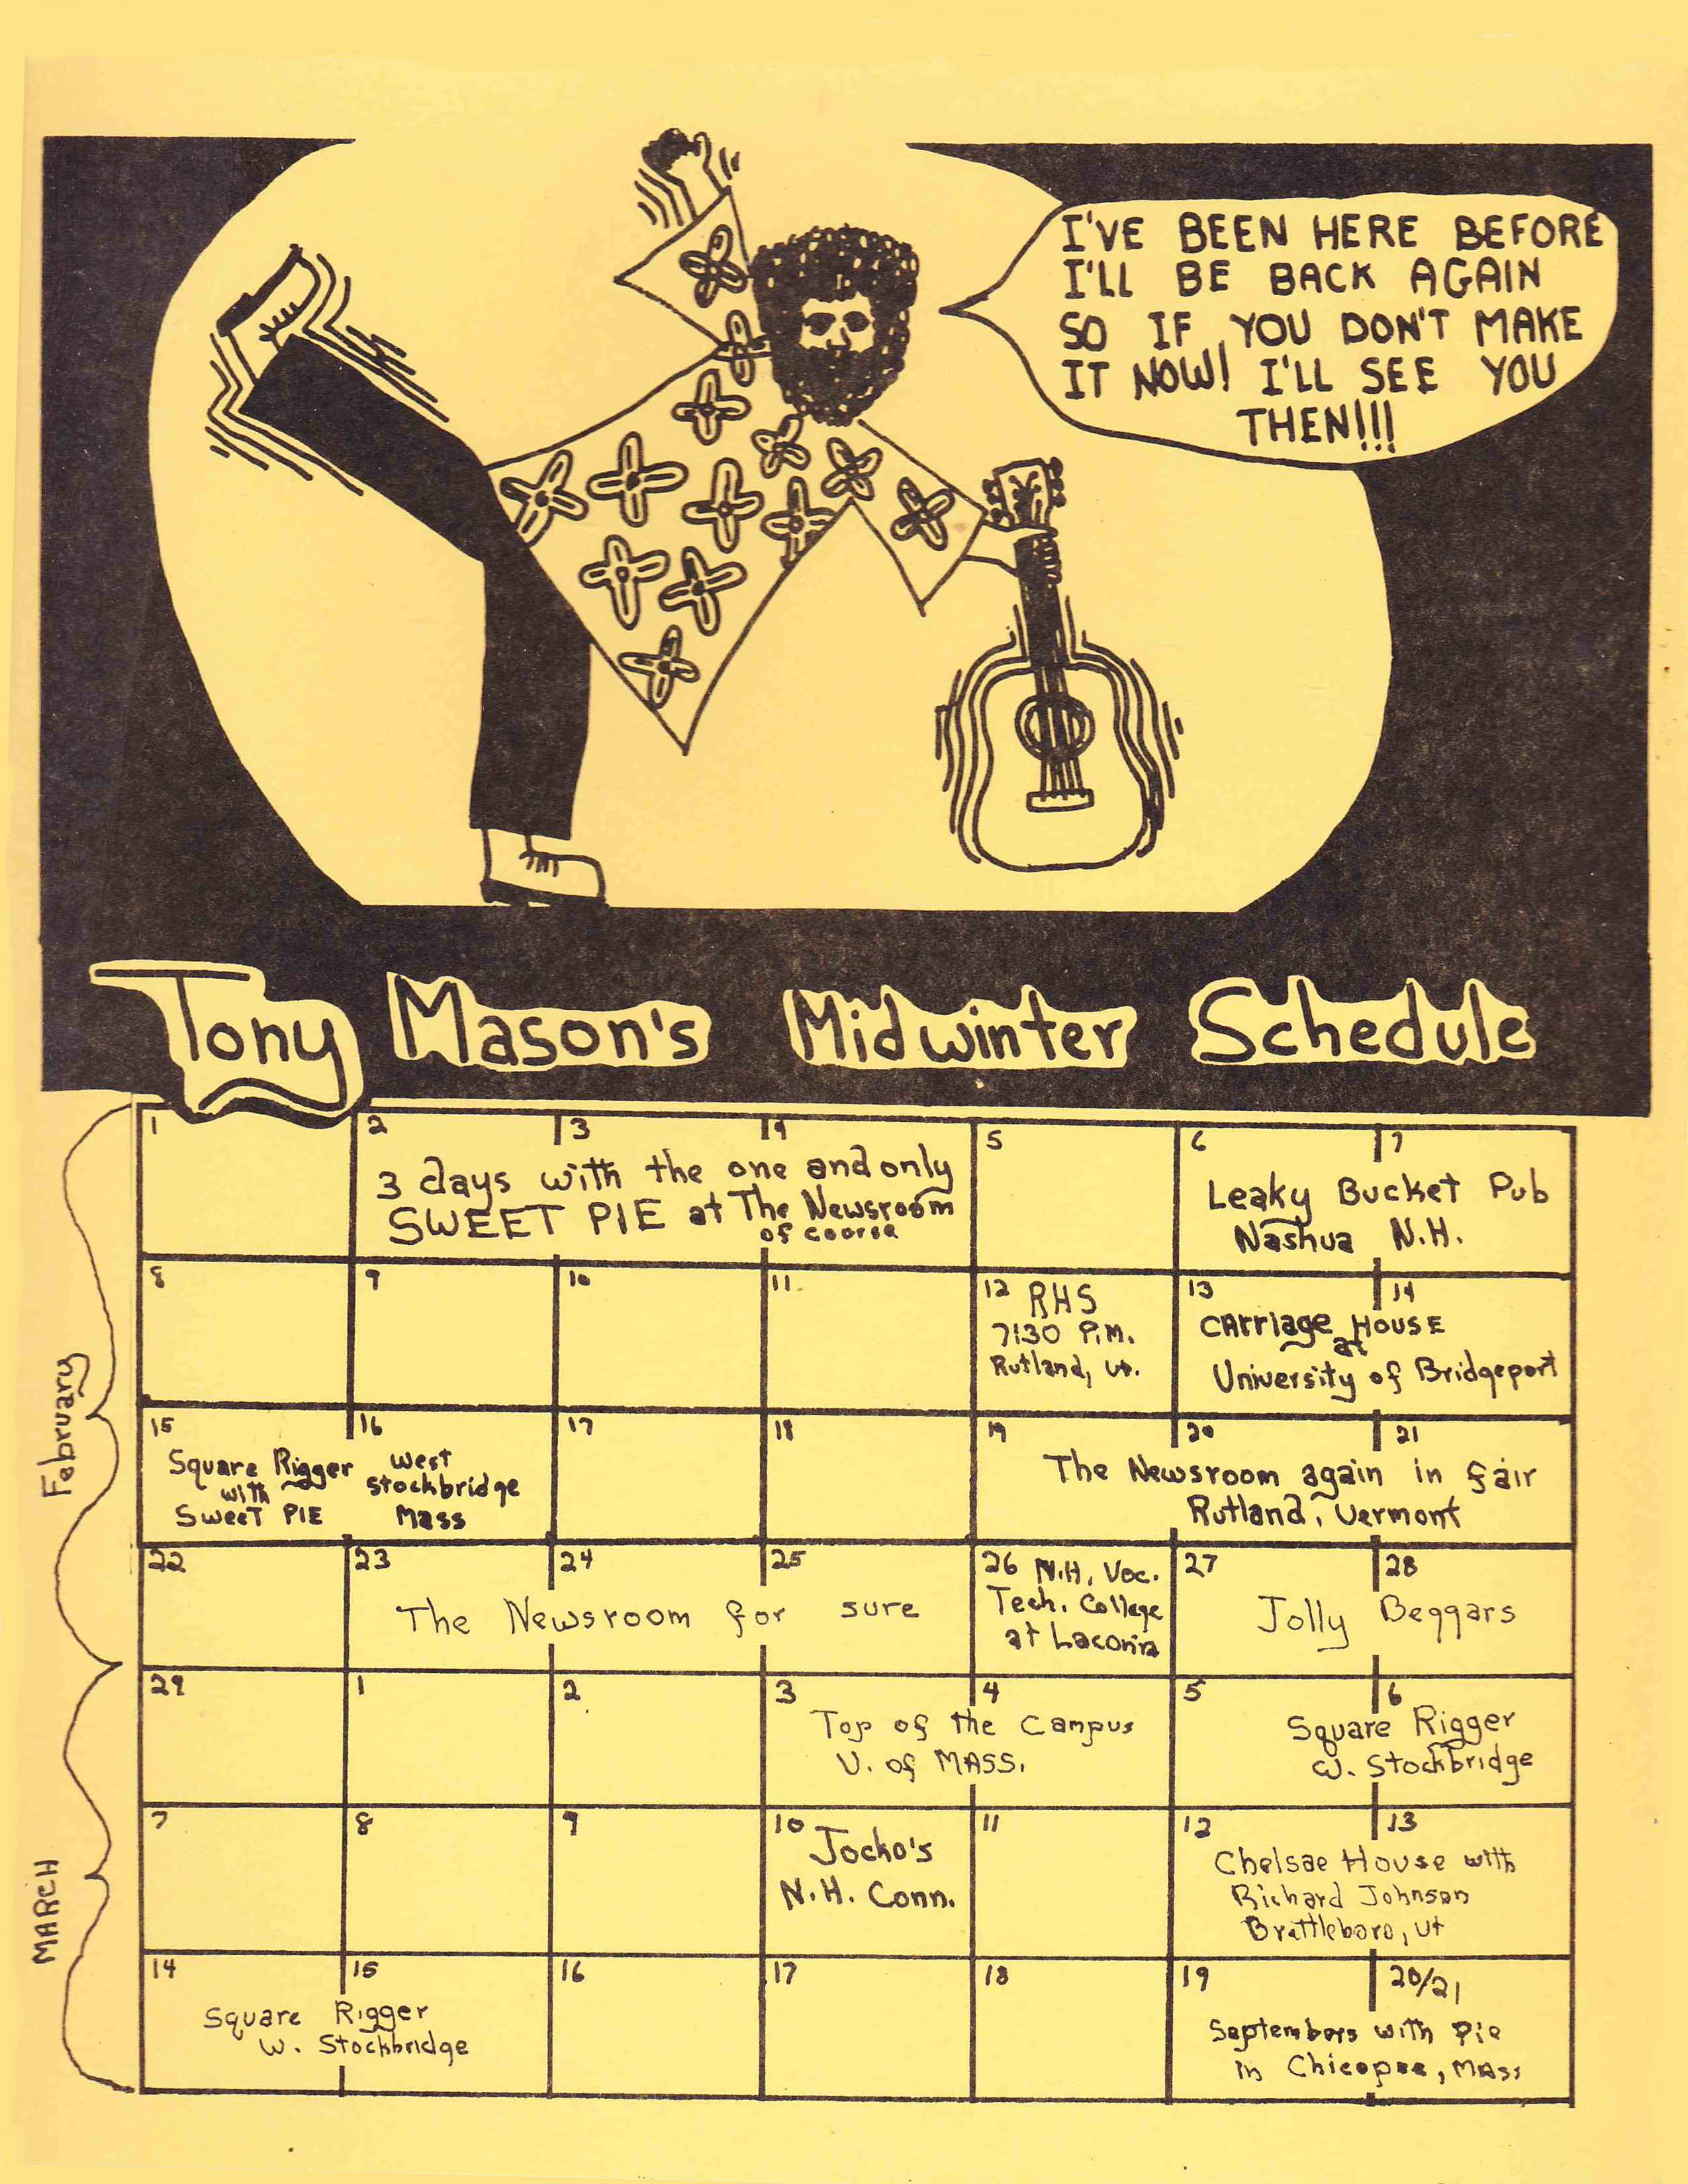 I'VE BEEN HERE BEFORE
I'LL BE BACK AGAIN
SO IF YOU DON'T MAKE
IT NOW! I'LL SEE YOU
THEN!!!
Tony Mason's Midwinter Schedule
February
1
2 3 4
3 days with the one and only
SWEET PIE at The Newsroom
of course
5
6 7
Leaky Bucket Pub
Nashua N.H.
8
9
10
11
12 RHS
7:30 P.M.
Rutland, Vt.
13 14
CArriage HOUSE
at
University of Bridgeport
15 16
Square Rigger West
with Stockbridge
SweeT PIE Mass
17
18
19 20 21
The Newsroom again in fair
Rutland, Vermont
22
23 24 25
The Newsroom for sure
26 N.H. Voc.
Tech. College
at Laconia
27 28
Jolly Beggars
29
MARCH
1
2
3 4
Top of the Campus
U. of MASS.
5 6
Square Rigger
W. Stockbridge
7
8
9
10 Jocko's
N.H. Conn.
11
12 13
Chelsae House with
Richard Johnson
Brattleboro, Vt
14 15
Square Rigger
W. Stockbridge
16
17
18
19 20/21
Septembers with Pie
in Chicopee, MAss